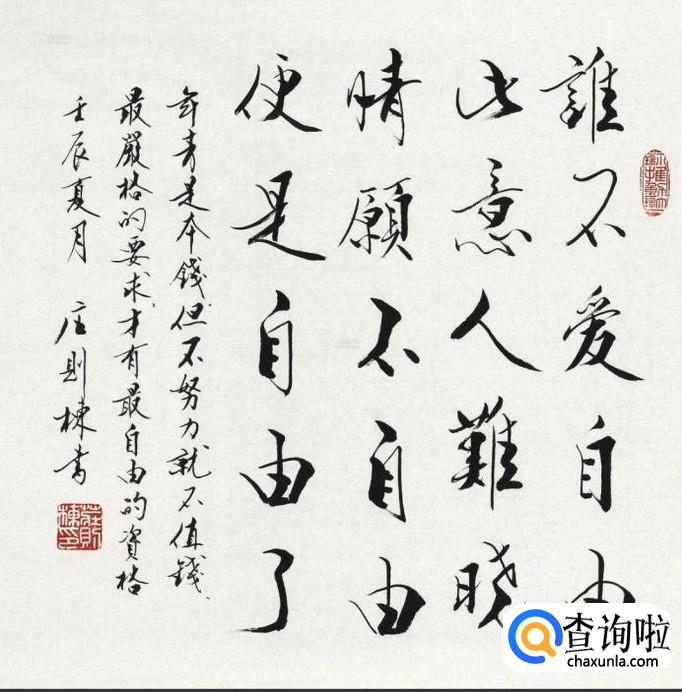 誰不爱自由
此意人難曉
情願不自由
便是自由了
年青是本錢但不努力就不值錢、
最嚴格的要求才有最自由的資格
壬辰夏月 庄則棟書
莊則棟印
查询啦
chaxunla.com